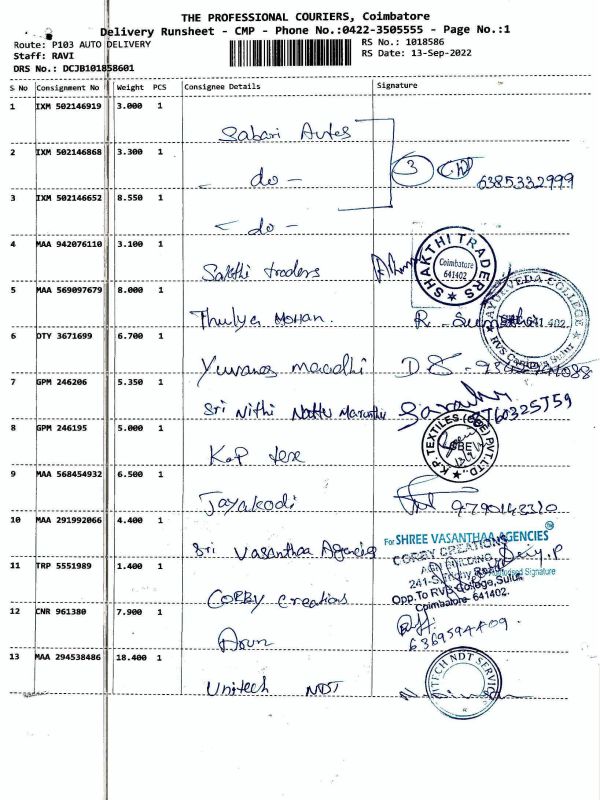 THE PROFESSIONAL COURIERS, Coimbatore
Delivery Runsheet - CMP - Phone No.:0422-3505555 - Page No.:1
Route: P103 AUTO DELIVERY
RS No.: 1018586
Staff: RAVI
RS Date: 13-Sep-2022
DRS No.: DCJB101858601
S No Consignment No Weight PCS Consignee Details Signature
1 IXM 502146919 3.000 1
Sabari Autos
2 IXM 502146868 3.300 1
- do - 3 6385332999
3 IXM 502146652 8.550 1
- do -
4 MAA 942076110 3.100 1
Sakthi traders
SHAKTHI TRADERS
Coimbatore
641402
5 MAA 569097679 8.000 1
Thulya MOHAN.
AYURVEDA COLLEGE
641 402.
6 DTY 3671699 6.700 1
D S -
7 GPM 246206 5.350 1
Sri Nithi
8 GPM 246195 5.000 1
K.P tex
K.P. TEXTILES (CBE) PVT. LTD.,
CBE
9 MAA 568454932 6.500 1
Jayakodi
10 MAA 291992066 4.400 1
Sri Vasanthaa Agencies
For SHREE VASANTHAA AGENCIES
Authorised Signature
11 TRP 5551989 1.400 1
CORBY Creations
CORBY CREATIONS
Opp.To RVS College,Sulur
Coimbatore- 641402.
12 CNR 961380 7.900 1
Arun
13 MAA 294538486 18.400 1
Unitech NDT
UNITECH NDT SERVICE